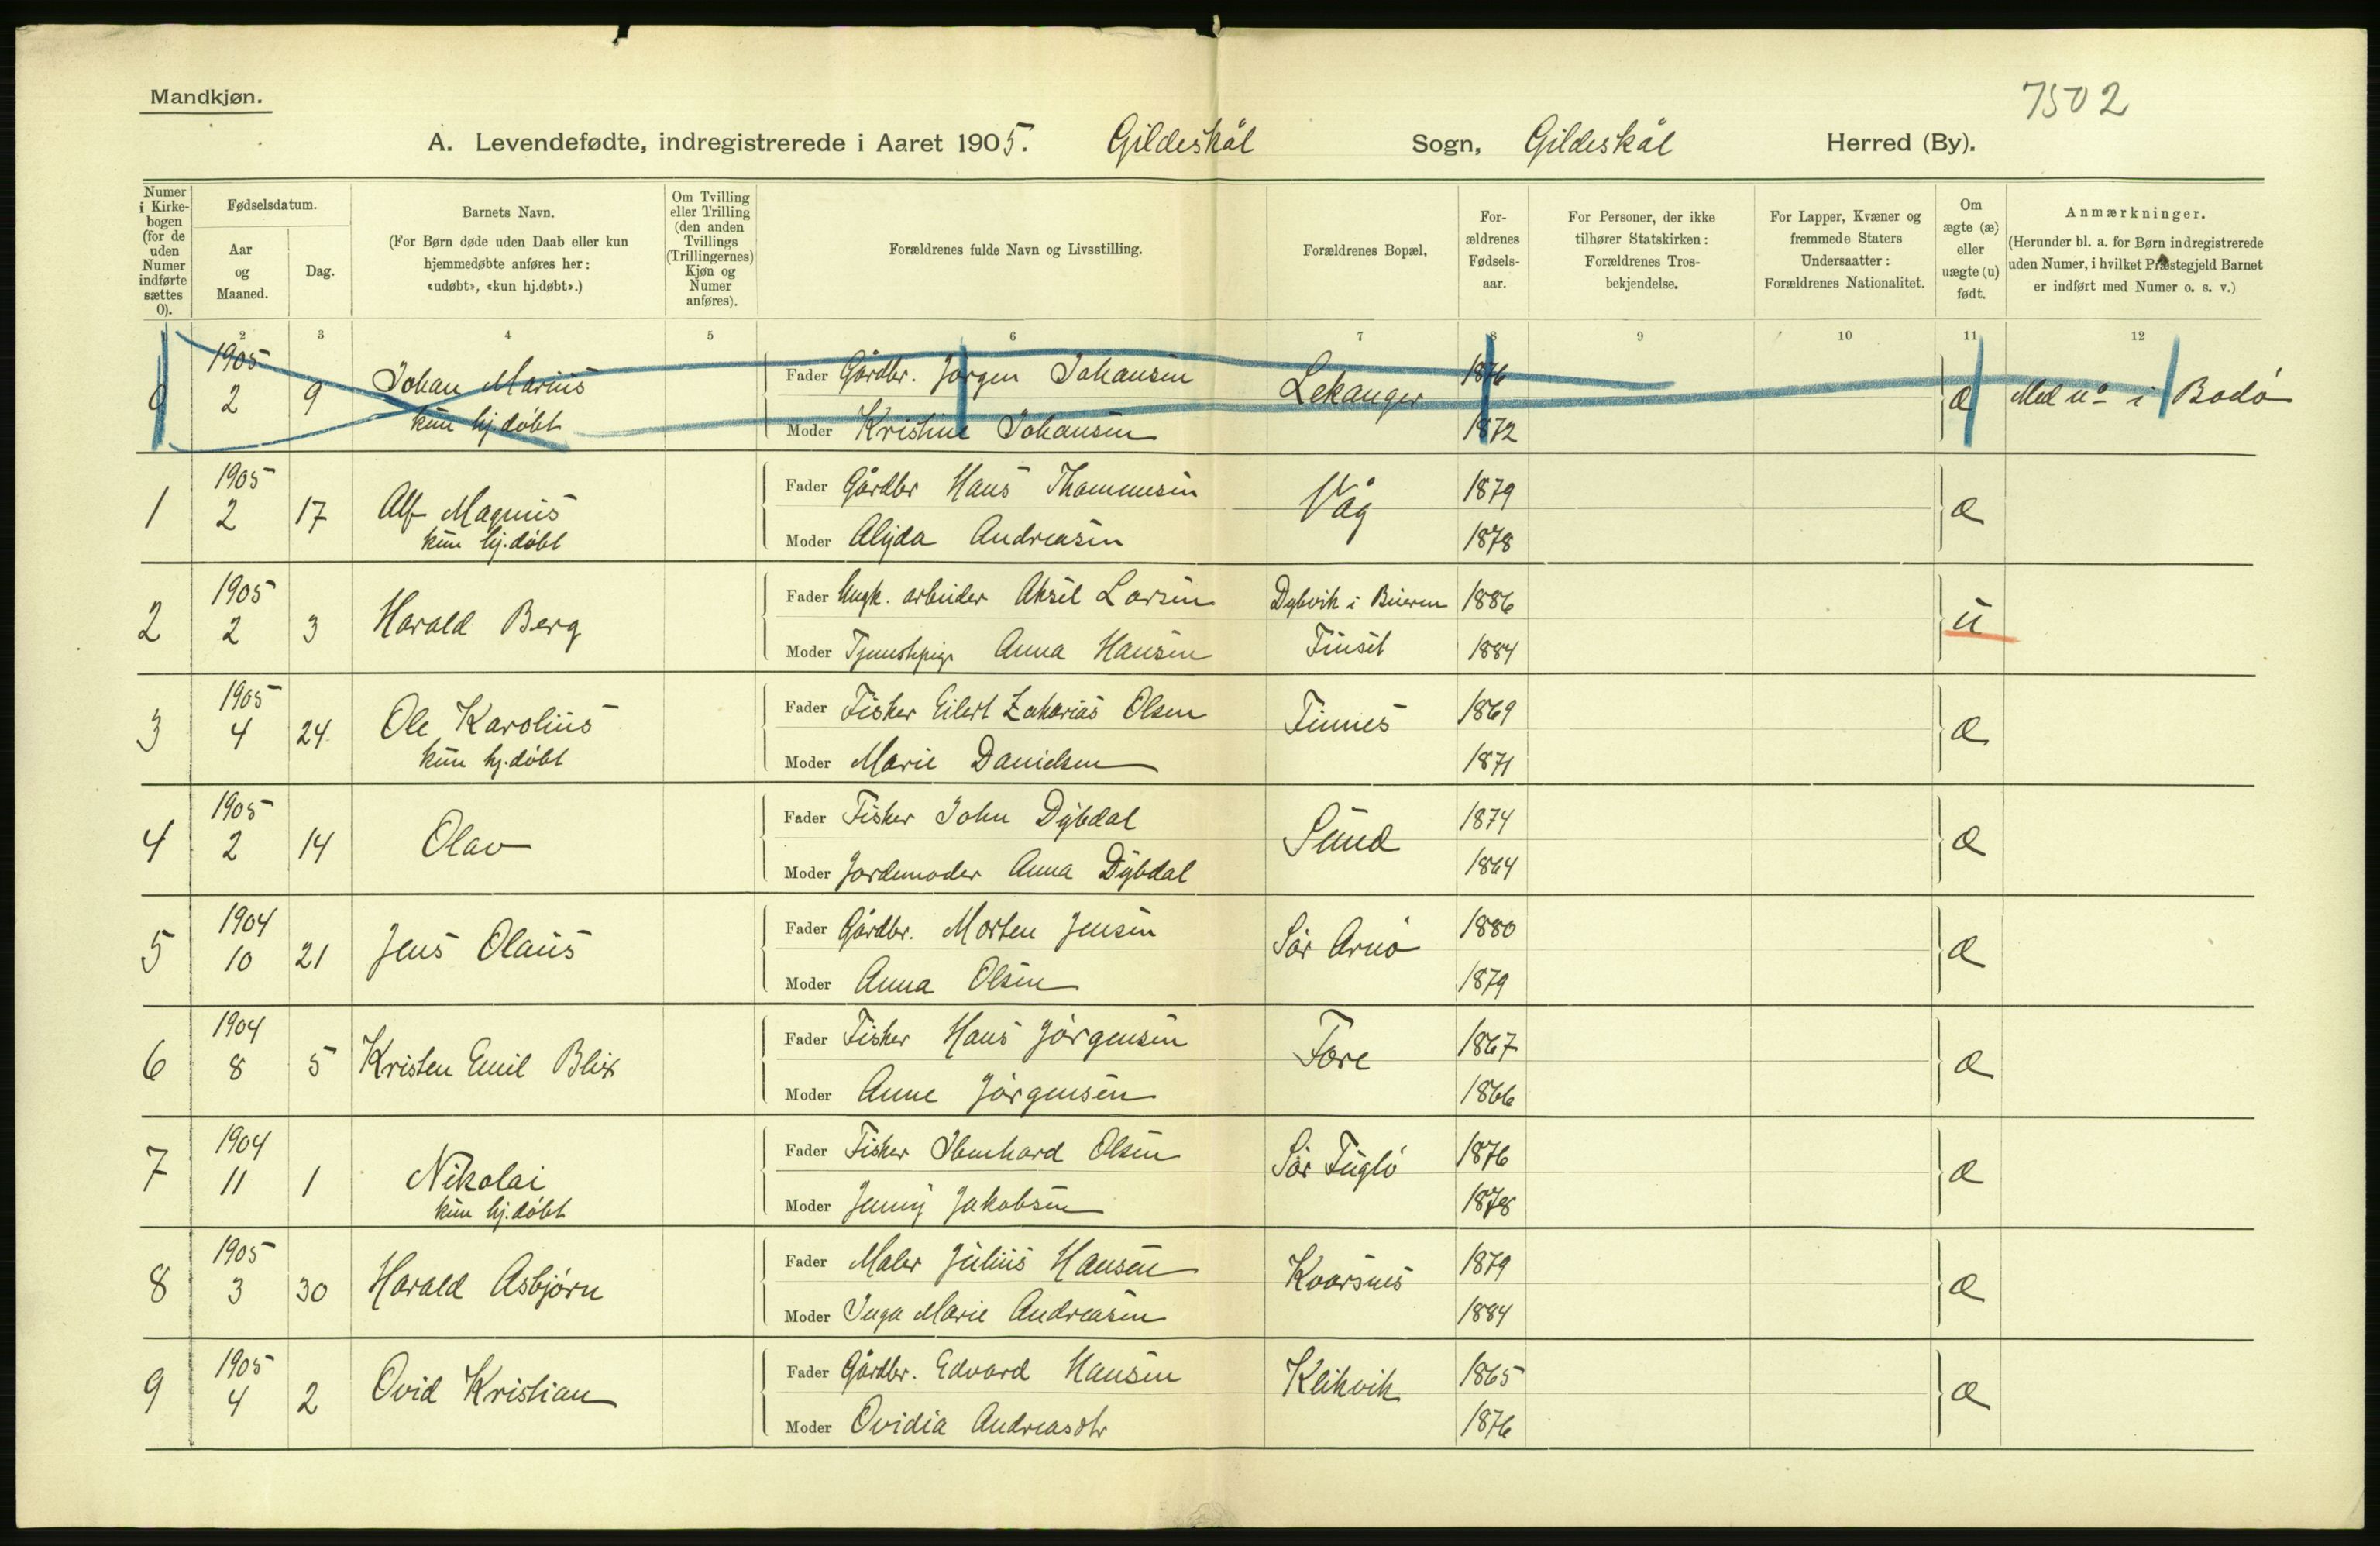 7502
Mandkjøn.
A. Levendefødte, indregistrerede i Aaret 1905. Gildeskål Sogn, Gildeskål Herred (By).
Numer i Kirkebogen (for de uden Numer indførte sættes 0).
Fødselsdatum.
Aar og Maaned.
Dag.
Barnets Navn.
(For Børn døde uden Daab eller kun
hjemmedøbte anføres her:
«udøbt», «kun hj.døbt».)
Om Tvilling
eller Trilling
(den anden
Tvillings
(Trillingernes)
Kjøn og
Numer
anføres).
Forældrenes fulde Navn og Livsstilling.
Forældrenes Bopæl,
For-
ældrenes
Fødsels-
aar.
For Personer, der ikke
tilhører Statskirken:
Forældrenes Tros-
bekjendelse.
For Lapper, Kvæner og
fremmede Staters
Undersaatter:
Forældrenes Nationalitet.
Om
ægte (æ)
eller
uægte (u)
født.
Anmærkninger.
(Herunder bl. a. for Børn indregistrerede
uden Numer, i hvilket Præstegjeld Barnet
er indført med Numer o. s. v.)
2 3 4 5 6 7 8 9 10 11 12
1905
0 2 9 Johan Marius
kun hj.døbt
Fader Gårdbr. Jørgen Johansen Lekanger 1876 æ Med no i Bodø
Moder Kristine Johansen 1872
1905
1 2 17 Alf Magnus
kun hj.døbt
Fader Gårdbr Hans Thommesen Våg 1879 æ
Moder Alida Andreasen 1878
1905
2 2 3 Harald Berg
Fader Ungk. arbeider Aksel Larsen Dybvik i Beieren 1886 u
Moder Tjenestepige Anna Hansen Finset 1884
1905
3 4 24 Ole Karolius
kun hj.døbt
Fader Fisker Eilert Zakarias Olsen Finnes 1869 æ
Moder Marie Danielsen 1871
1905
4 2 14 Olav
Fader Fisker John Dybdal Sund 1874 æ
Moder Jordemoder Anna Dybdal 1864
1904
5 10 21 Jens Olaus
Fader Gårdbr. Morten Jensen Sør Arnø 1880 æ
Moder Anna Olsen 1879
1904
6 8 5 Kristen Emil Blix
Fader Fisker Hans Jørgensen Føre 1867 æ
Moder Anne Jørgensen 1866
1904
7 11 1 Nikolai
kun hj.døbt
Fader Fisker Olsen Sør Fuglø 1876 æ
Moder Jenny Jakobsen 1878
1905
8 3 30 Harald Asbjørn
Fader Maler Julius Hansen Kvarsnes 1879 æ
Moder Inga Marie Andreasen 1884
1905
9 4 2 Ovid Kristian
Fader Gårdbr. Edvard Hansen Kleikvik 1865 æ
Moder Ovidia Andreasdtr 1876